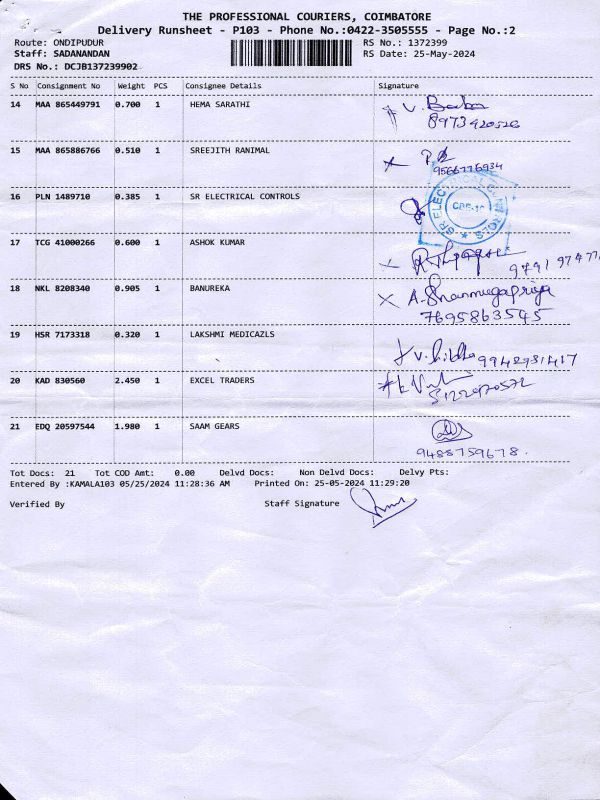 THE PROFESSIONAL COURIERS, COIMBATORE
Delivery Runsheet - P103 - Phone No.:0422-3505555 - Page No.:2
Route: ONDIPUDUR
RS No.: 1372399
Staff: SADANANDAN
RS Date: 25-May-2024
DRS No.: DCJB137239902
S No Consignment No Weight PCS Consignee Details Signature
14 MAA 865449791 0.700 1 HEMA SARATHI
V.
8973420526
15 MAA 865886766 0.510 1 SREEJITH RANIMAL
9566776934
16 PLN 1489710 0.385 1 SR ELECTRICAL CONTROLS
SR ELECTRICAL CONTROLS
17 TCG 41000266 0.600 1 ASHOK KUMAR
18 NKL 8208340 0.905 1 BANUREKA
A. Shanmugapriya
7695863545
19 HSR 7173318 0.320 1 LAKSHMI MEDICAZLS
9942981417
20 KAD 830560 2.450 1 EXCEL TRADERS
21 EDQ 20597544 1.980 1 SAAM GEARS
9488759678.
Tot Docs: 21 Tot COD Amt: 0.00 Delvd Docs: Non Delvd Docs: Delvy Pts:
Entered By :KAMALA103 05/25/2024 11:28:36 AM Printed On: 25-05-2024 11:29:20
Verified By Staff Signature